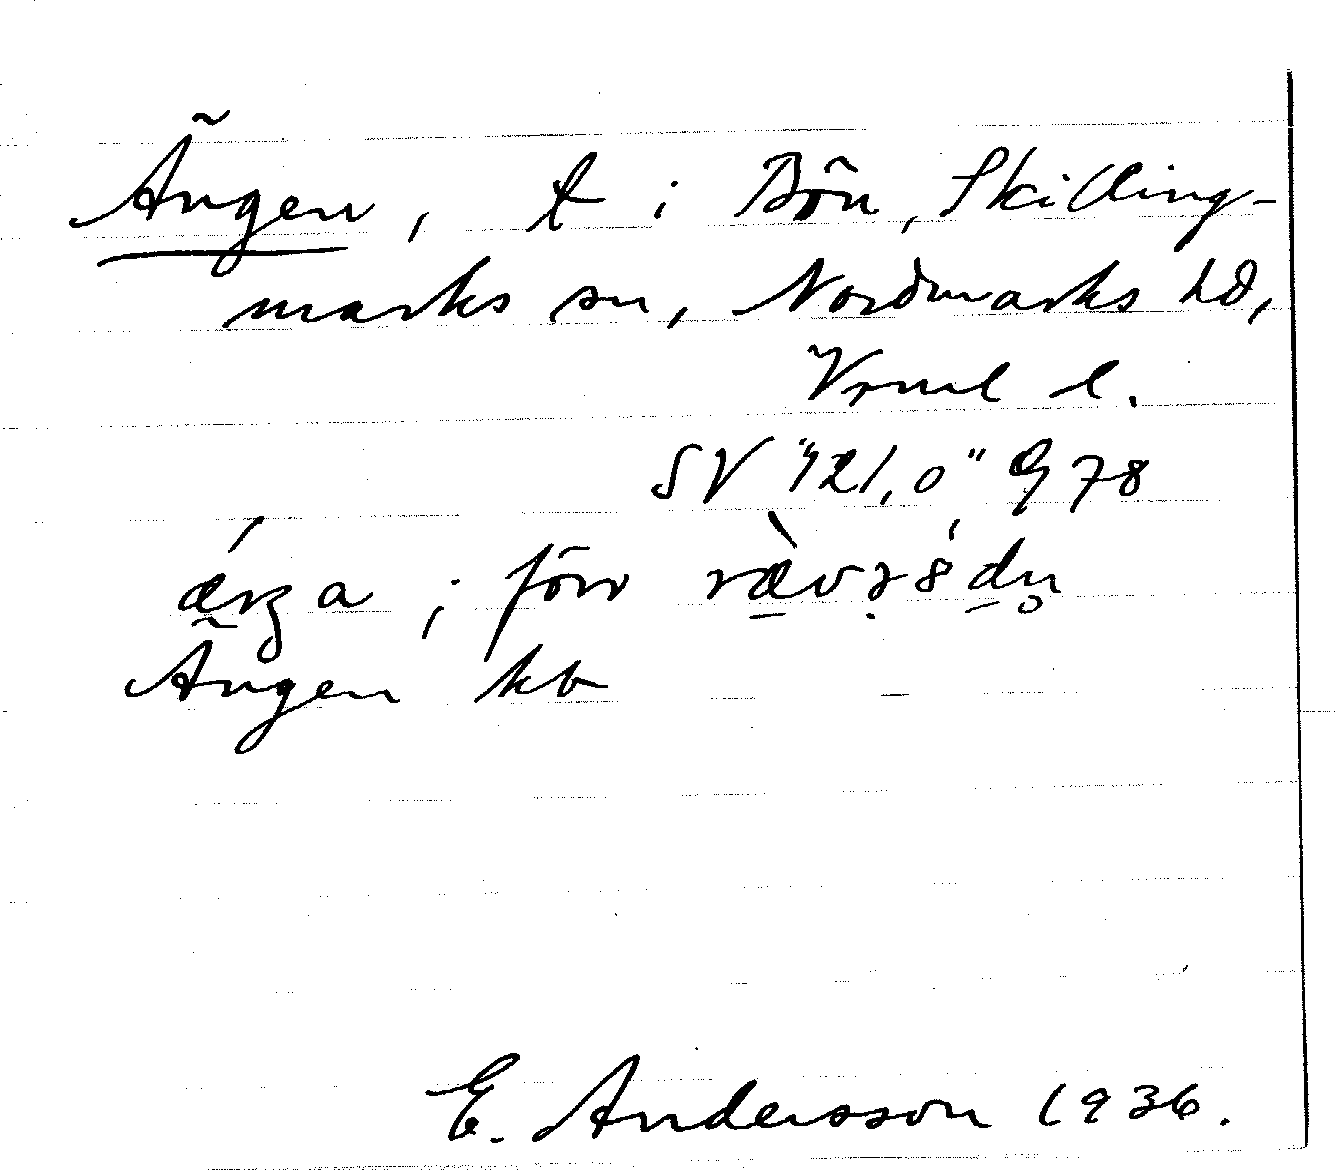 Ängen, t i Bön, Skilling-
marks sn, Nordmarks hd,
Vrml l.
SV "121,0" Q 78
a ; förr
Ängen kb
E. Andersson 1936.